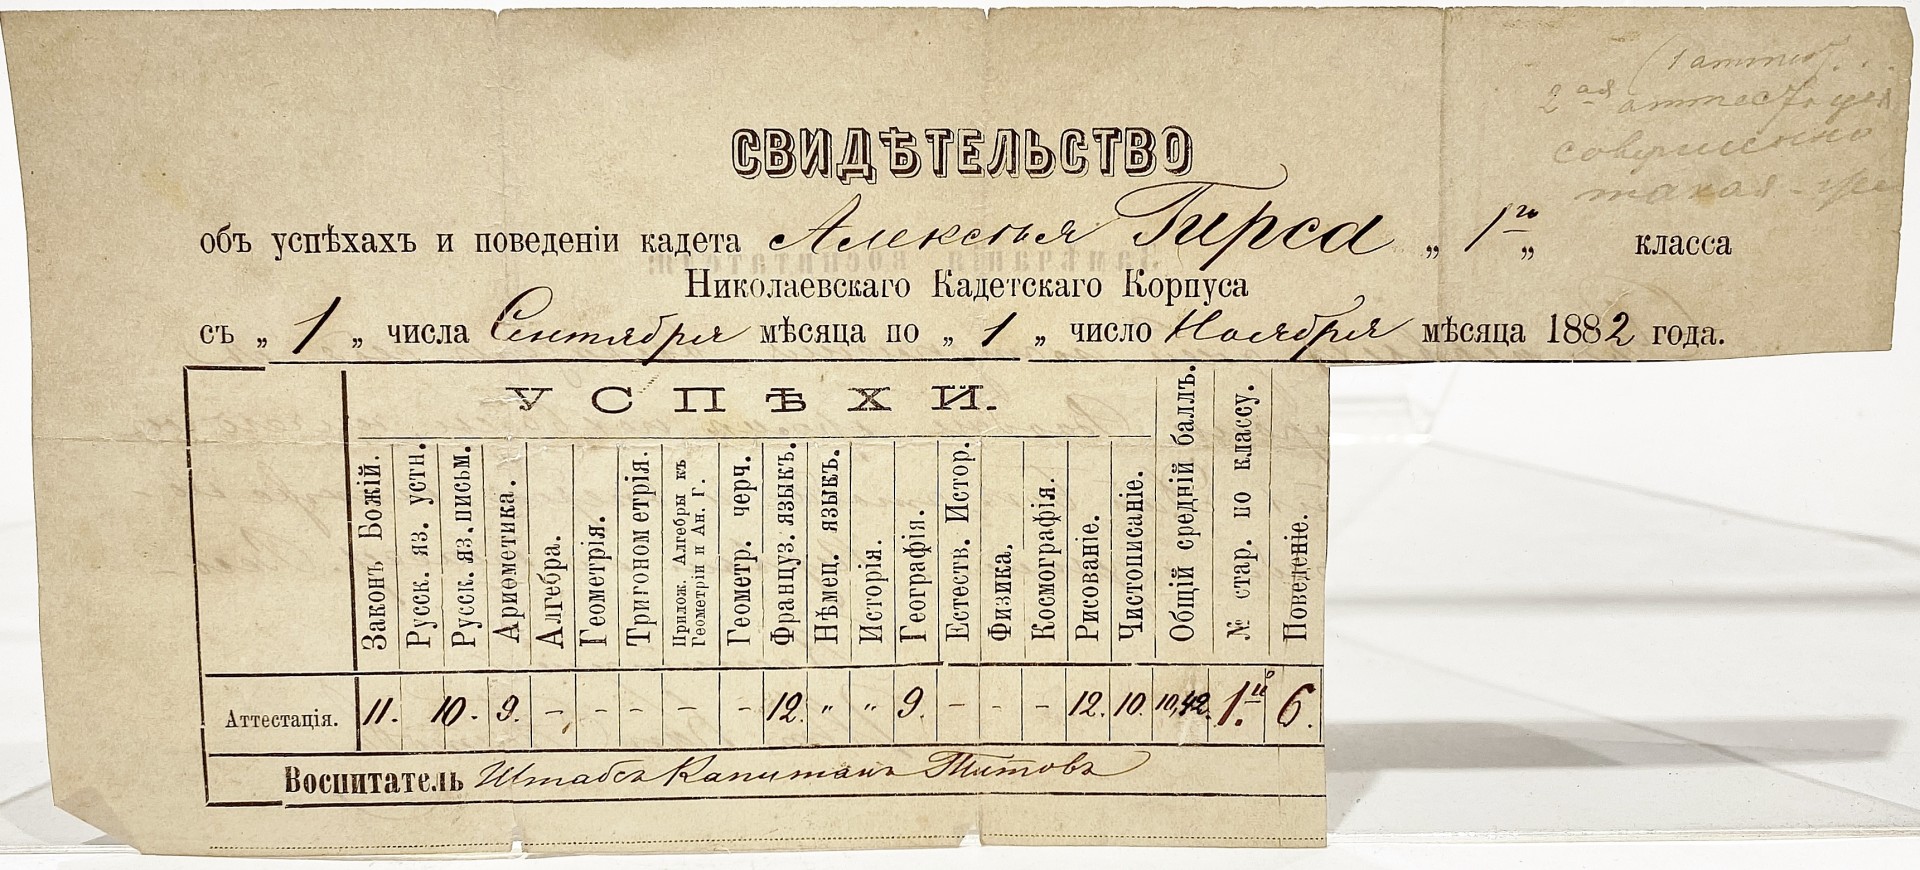 2ая аттестация
совершенно
такая-же
СВИДѢТЕЛЬСТВО
объ успѣхахъ и поведеніи кадета Алексѣя Гирса „ 1го „ класса
Николаевскаго Кадетскаго Корпуса
съ „ 1 „ числа Сентября мѣсяца по „ 1 „ число Ноября мѣсяца 1882 года.
УСПѢХИ.
Законъ Божій.
Русск. яз. устн.
Русск. яз. письм.
Ариѳметика.
Алгебра.
Геометрія.
Тригонометрія.
Прилож. Алгебры къ
Геометріи и Ан. Г.
Геометр. черч.
Француз. языкъ.
Нѣмец. языкъ.
Исторія.
Географія.
Естеств. Истор.
Физика.
Космографія.
Рисованіе.
Чистописаніе.
Общій средній баллъ.
№ стар. по классу.
Поведеніе.
Аттестація. 11. 10. 9. – – – – – 12. „ „ 9. – – – 12. 10. 10,42. 1.й 6.
Воспитатель Штабсъ Капитанъ Титовъ